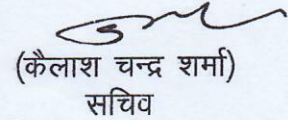 (कैलाश चन्द्र शर्मा)
सचिव